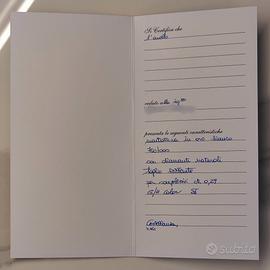 Si Certifica che
l'anello
ceduto alla
presenta le seguenti caratteristiche
in oro bianco
750/000
con diamanti naturali
taglio brillante
per complessivi ct 0,29
color SI
subito